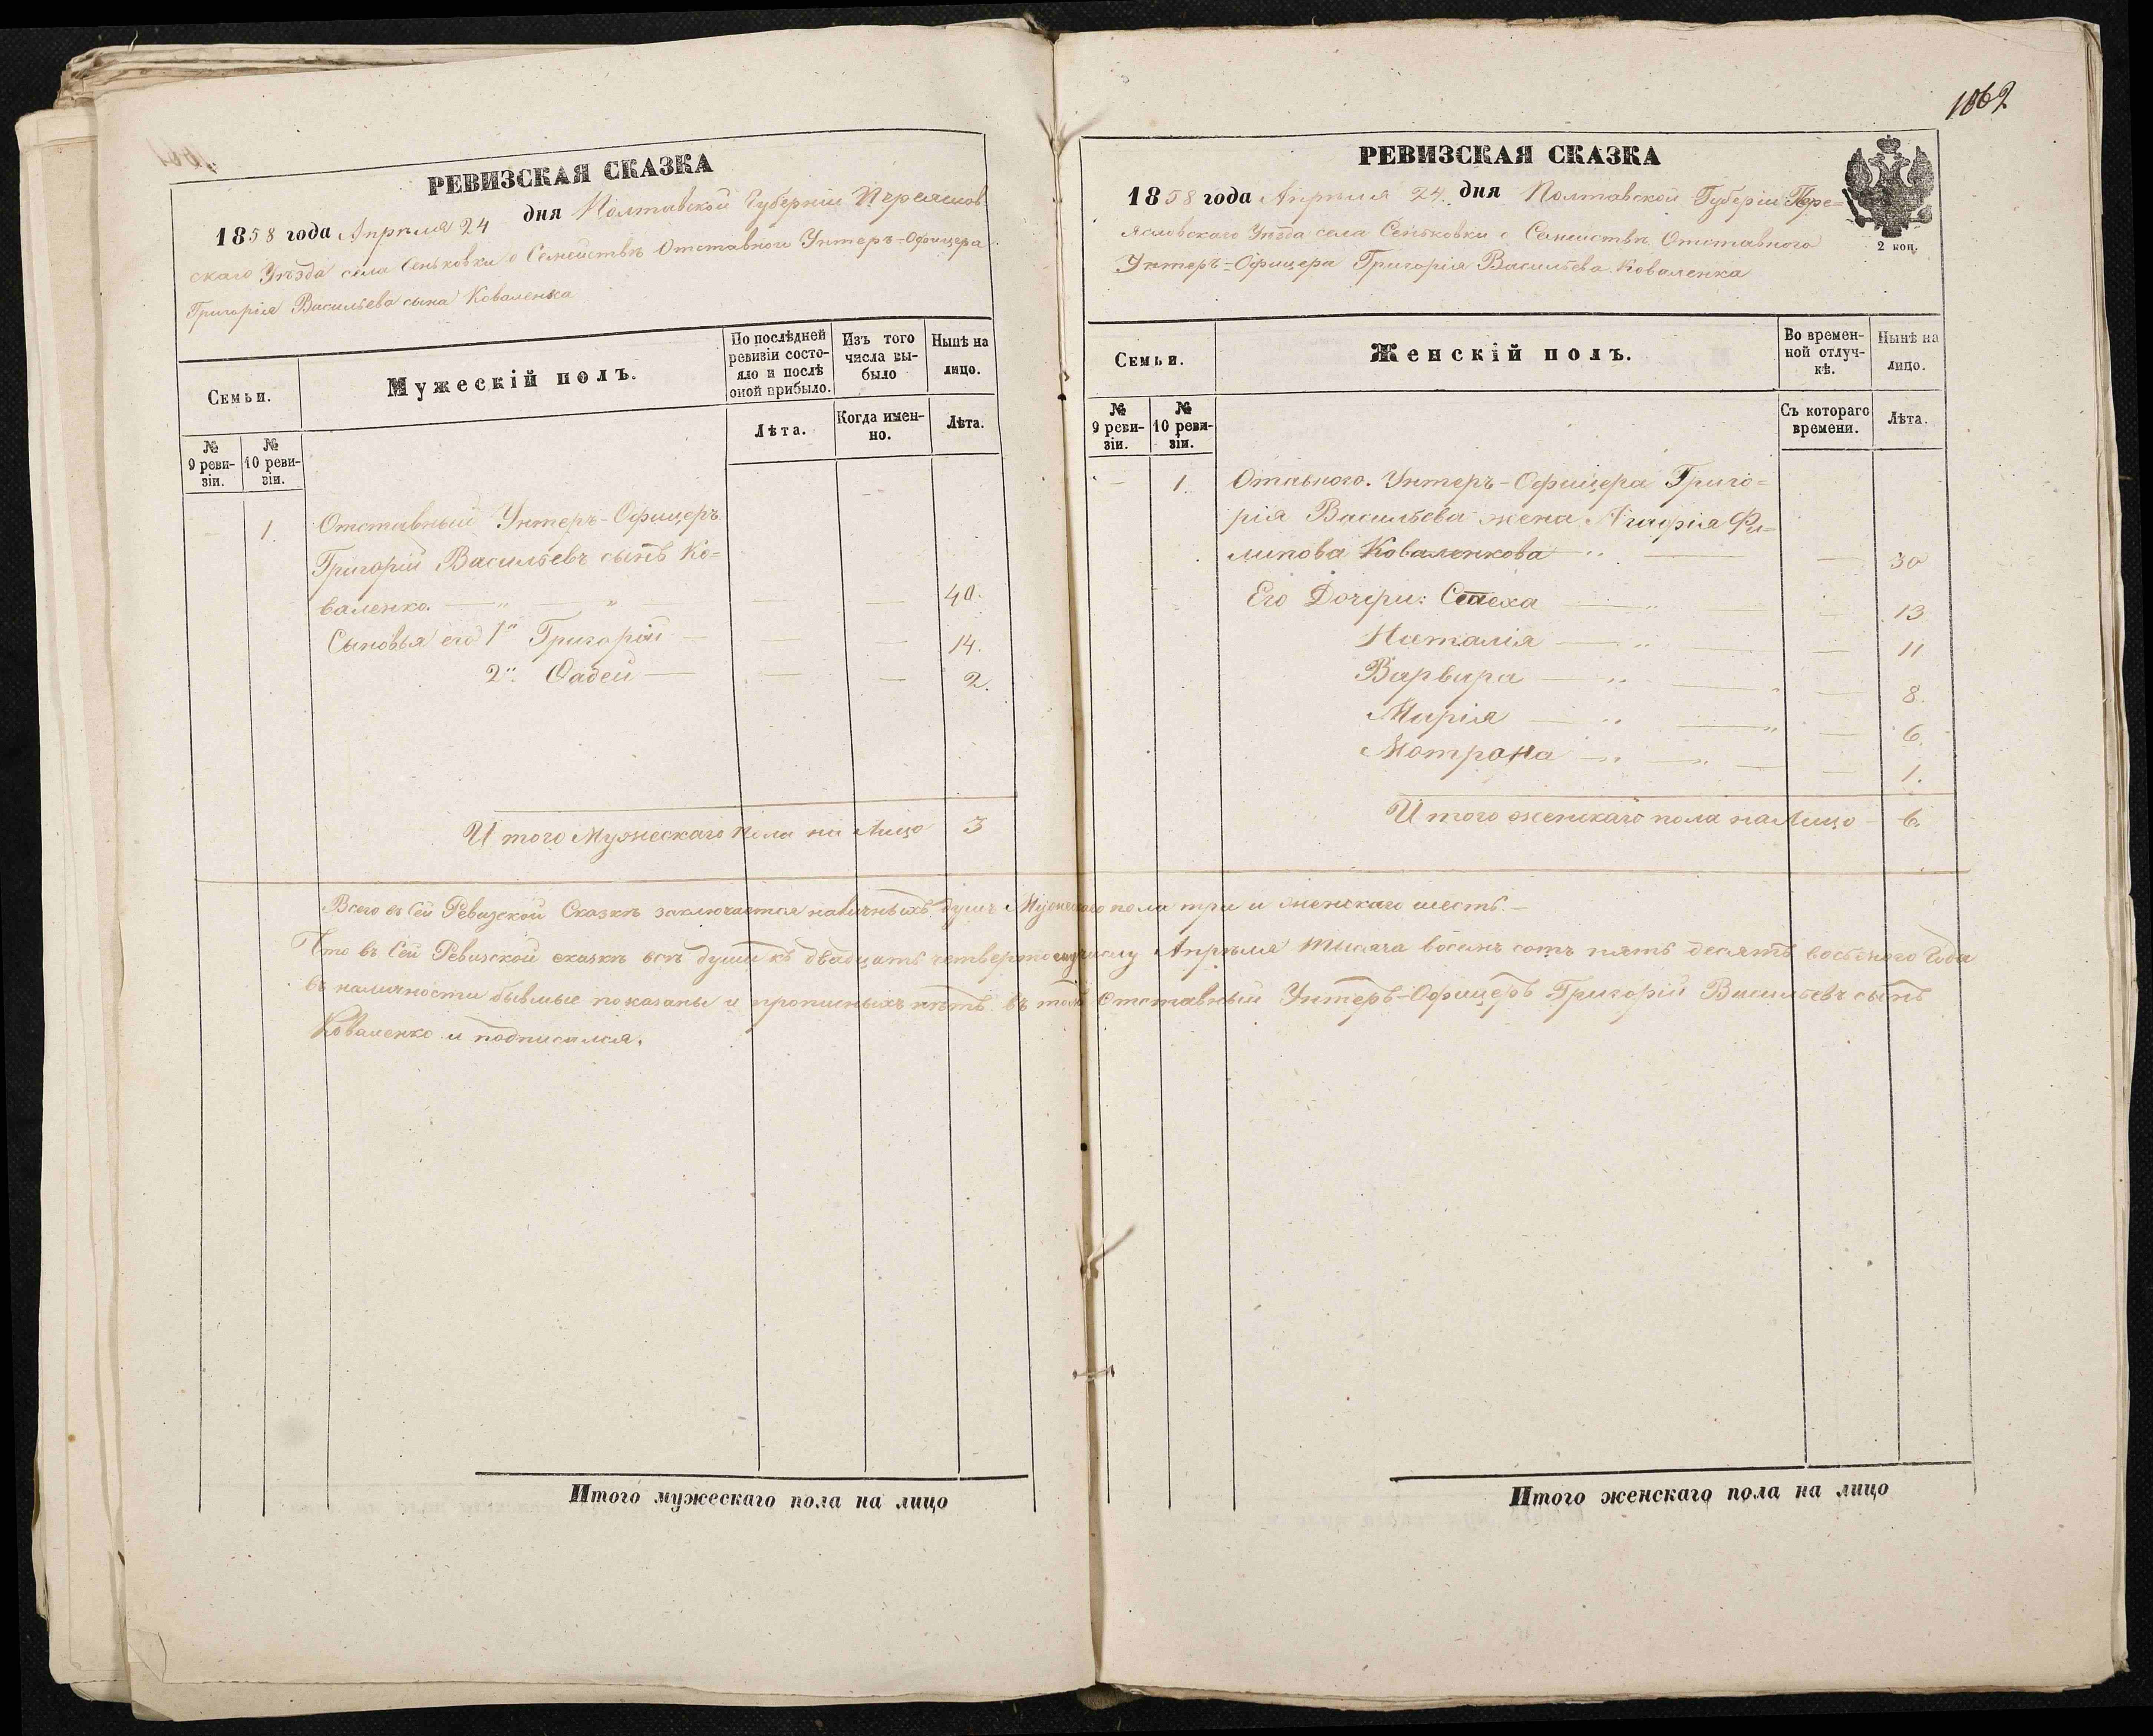 РЕВИЗСКАЯ СКАЗКА
1858 года Апреля 24 дня Полтавской Губерніи Переяслов
скаго Уѣзда села Сеньковки о Семействѣ Отставнаго Унтеръ-Офицера
Григорія Васильева сына Коваленка
Семьи.
Мужескій полъ.
По послѣдней ревизіи состояло и послѣ оной прибыло.
Изъ того числа выбыло
Нынѣ на лицо.
№ 9 ревизіи.
№ 10 ревизіи.
Лѣта.
Когда именно.
Лѣта.
1. Отставный Унтеръ-Офицеръ
Григорій Васильевъ сынъ Ко=
валенко. — „ — „ — — — 40.
Сыновья его 1й Григорій — — — 14.
2й Фадей — — — 2.
И того Мужескаго пола на лицо 3
Итого мужескаго пола на лицо
1062
РЕВИЗСКАЯ СКАЗКА
2 коп.
1858 года Апреля 24. дня Полтавской Губеріи Пере=
ясловскаго Уѣзда села Сеньковки о Семействѣ Отставного
Унтеръ-Офицера Григорія Васильева Коваленка
Семьи.
Женскій полъ.
Во временной отлучкѣ.
Нынѣ на лицо.
№ 9 ревизіи.
№ 10 ревизіи.
Съ котораго времени.
Лѣта.
— 1. Отавного. Унтеръ-Офицера Григо=
рія Васильева жена Агафія Фи=
липова Коваленкова — — 30
Его Дочери: Стеха — „ — — 13
Наталія — „ — — 11
Варвара — „ — — 8.
Марія — „ — „ — 6.
Мотрона — „ — „ — — 1.
И того женскаго пола на лицо — 6.
Всего въ Сей Ревизской Сказкѣ заключается наличныхъ душъ Мужескаго пола три и женскаго шесть. —
Что въ Сей Ревизской сказкѣ всѣ души къ двадцать четвертому числу Апреля тысяча восемь сотъ пять десятъ восьмого Года
въ наличности бывшые показаны и прописныхъ нѣтъ въ томъ Отставный Унтеръ-Офицеръ Григорій Васильевъ сынъ
Коваленко и подписался.
Итого женскаго пола на лицо